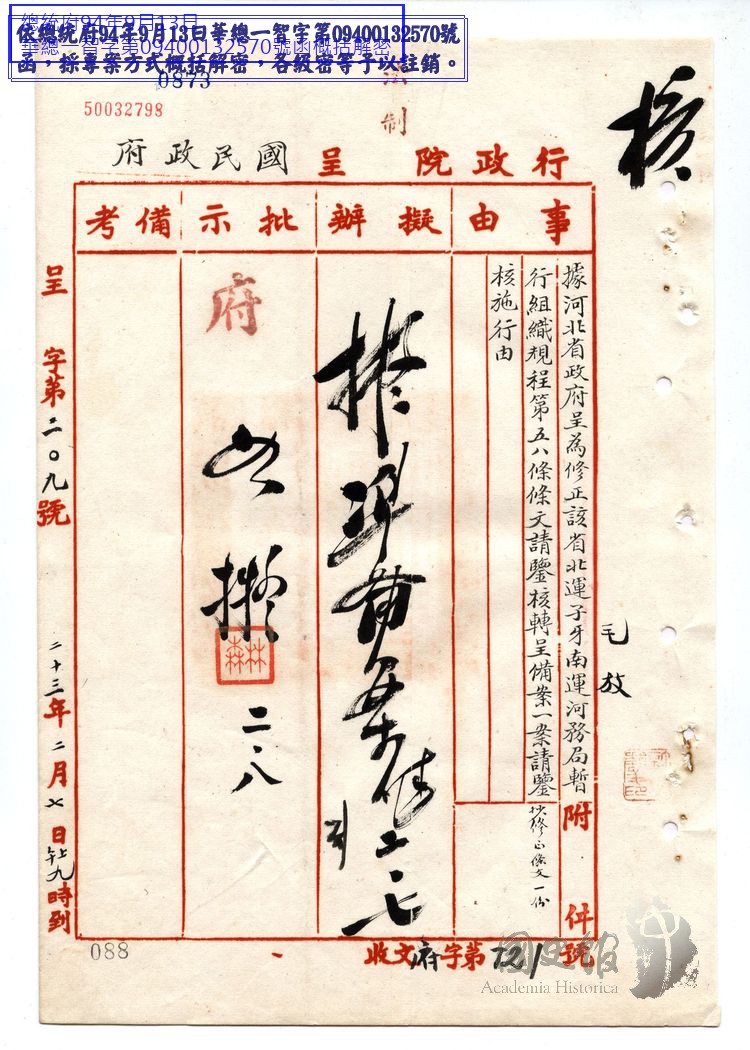 總統府94年9月13日
華總一智字第09400132570號函概括解密
依總統府94年9月13日華總一智字第09400132570號
函，採專案方式概括解密，各級密等予以註銷。
0873
50032798
法制
核
行政院呈
國民政府
事由
擬辦
批示
備考
據河北省政府呈為修正該省北運子牙南運河務局暫
行組織規程第五八條條文請鑒核轉呈備案一案請鑒
核施行由
附件
抄修正條文一份
擬準備案
二、七
府
如擬
林森
二、八
毛放
呈字第二〇九號
二十三年二月七日
九時到
收文府字第721號
088
國史館
Academia Historica